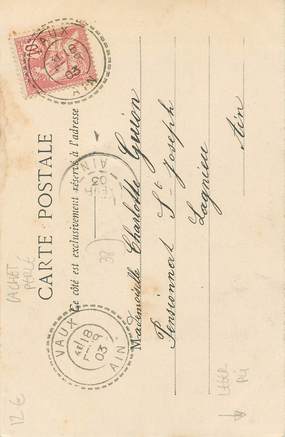 CARTE POSTALE
Ce côté est exclusivement réservé à l'adresse
Mademoiselle Charlotte Guion
Pensionnat St Joseph
Lagnieu
Ain
10
VAUX
03
AIN
AIN
VAUX
18
03
AIN
38
CACHET
PERLÉ
12 €
LEGER
PLI